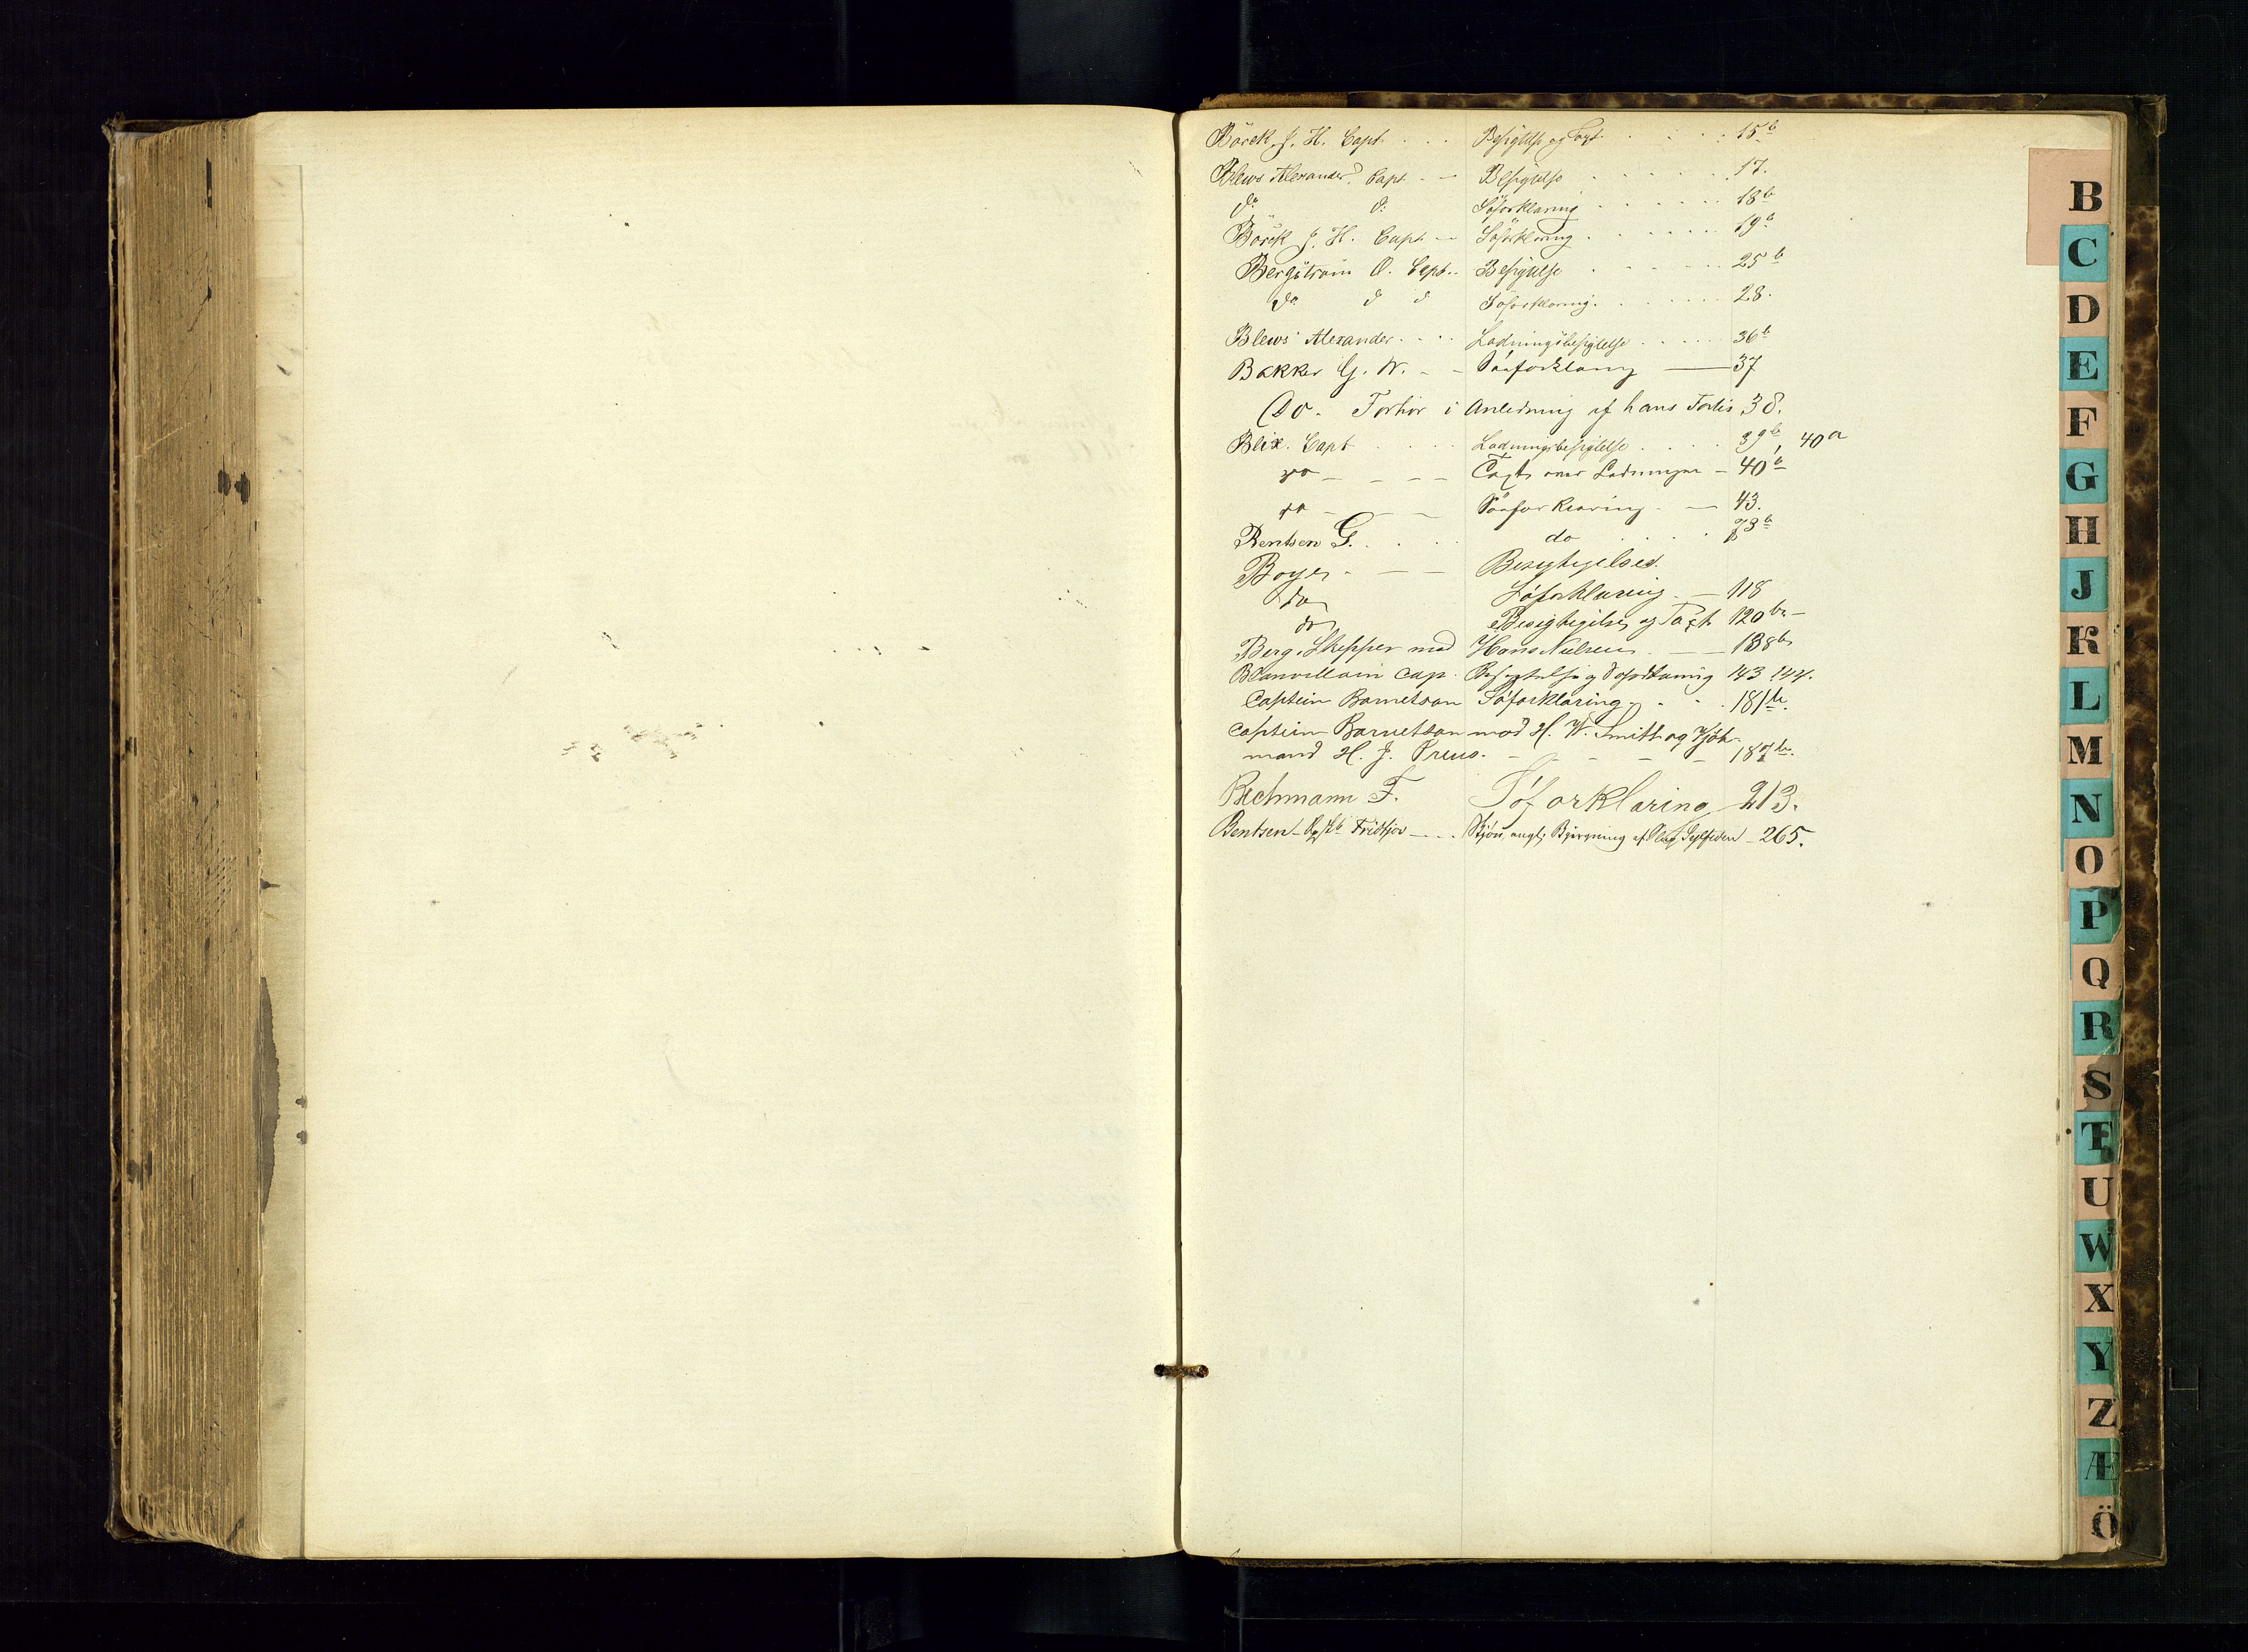 Börck, J. H. Capt. . . . Besigtelse og Taxt . . . . 15b
Blews Alexander, Capt. - - Besigtelse . . . . . 17.
do do Søforklaring . . . . . . 18b
Börck J. H. Capt - Søforklaring . . . . . . 19b
Bergström O. Capt. . Besigtelse . . . . . 25b
do d d Søforklaring . . . . . . 28.
Blews Alexander . . . . Ladningsbesigtelse . . . . . 36b
Bakker G. W. - - Søeforklaring — 37
Do. Forhör i Anledning af hans Forlis 38.
Blix. Capt . . . . Ladningsbesigtelse . . . . 39b, 40a
do - - - - Taxt over Ladningen - 40b
do - - - Søeforklaring - — 43.
Bentsen G. . . . . do . . . . 73b
Boyes - — — Besigtigelse
do Söforklaring — 118
do Besigtigelse og Taxt 120b -
Berg, Skipper mod Hans Nielsen — 138b
Blanvillain Cap. Besigtelse og Søforklaring 143, 144.
Captein Barnetson Søforklaring . . . 181b.
Captein Barnetson mod H. W. Smith og Kjöb-
mand H. J. Preus. - - - - - 187b.
Bechmann F. Søforklaring 213.
Bentsen - Fridtjov - - . . Skjön, angd; Bjergning af 265.
B
C
D
E
F
G
H
J
K
L
M
N
O
P
Q
R
S
T
U
W
X
Y
Z
Æ
Ö